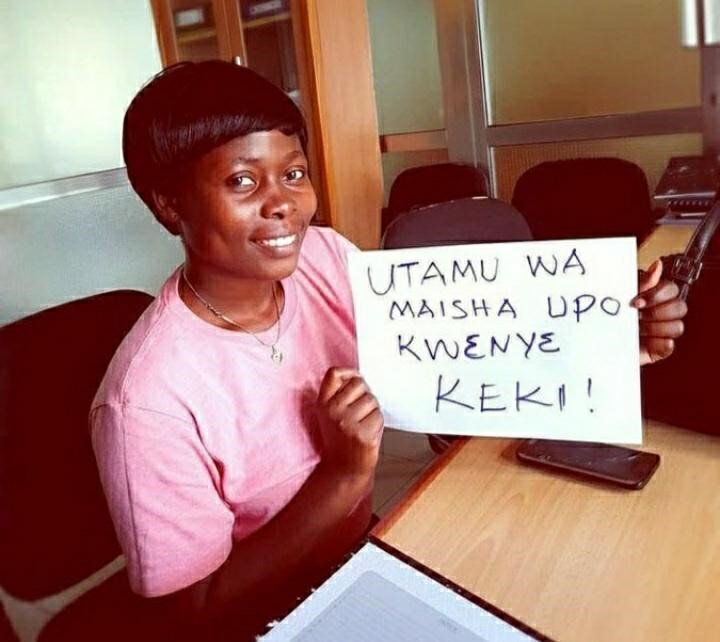 UTAMU WA
MAISHA UPO
KWENYE
KEKI!